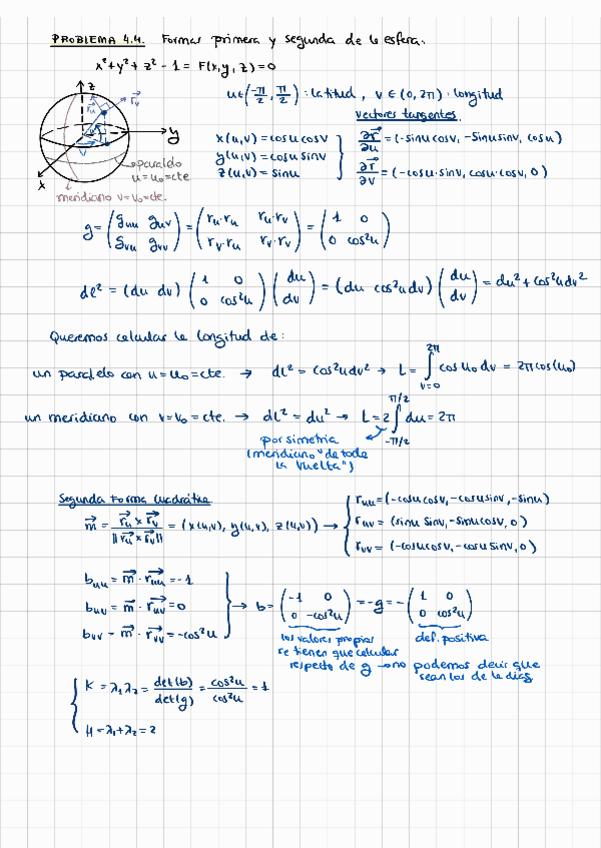 PROBLEMA 4.4. Formas primera y segunda de la esfera.
x² + y² + z² - 1 = F(x,y,z) = 0
u∈(-π/2, π/2): latitud, v ∈ (0, 2π): longitud
vectores tangentes.
z
r_u
r_v
y
x
v
u
paralelo
u = u₀ = cte
meridiano v = v₀ = cte.
x(u,v) = cosu cosv
y(u,v) = cosu sinv
z(u,v) = sinu
∂r/∂u = (-sinu cosv, -sinu sinv, cosu)
∂r/∂v = (-cosu·sinv, cosu·cosv, 0)
g = (g_uu g_uv / g_vu g_vv) = (r_u·r_u r_u·r_v / r_v·r_u r_v·r_v) = (1 0 / 0 cos²u)
dl² = (du dv) (1 0 / 0 cos²u) (du / dv) = (du cos²u dv) (du / dv) = du² + cos²u dv²
Queremos calcular la longitud de:
un paralelo con u = u₀ = cte. → dl² = cos²u dv² → L = ∫_{v=0}^{2π} cos u₀ dv = 2π cos(u₀)
un meridiano con v = v₀ = cte. → dl² = du² → L = 2∫_{-π/2}^{π/2} du = 2π
por simetría
(meridiano "de toda
la vuelta")
Segunda forma cuadrática
m = r_u × r_v / ||r_u × r_v|| = (x(u,v), y(u,v), z(u,v)) →
r_uu = (-cosu cosv, -cosu sinv, -sinu)
r_uv = (sinu sinv, -sinu cosv, 0)
r_vv = (-cosu cosv, -cosu sinv, 0)
b_uu = m · r_uu = -1
b_uv = m · r_uv = 0
b_vv = m · r_vv = -cos²u
→ b = (-1 0 / 0 -cos²u) = -g = -(1 0 / 0 cos²u)
los valores propios
se tienen que calcular
respecto de g → no podemos decir que
sean los de la diag
def. positiva
K = λ₁λ₂ = det(b)/det(g) = cos²u/cos²u = 1
H = λ₁ + λ₂ = 2